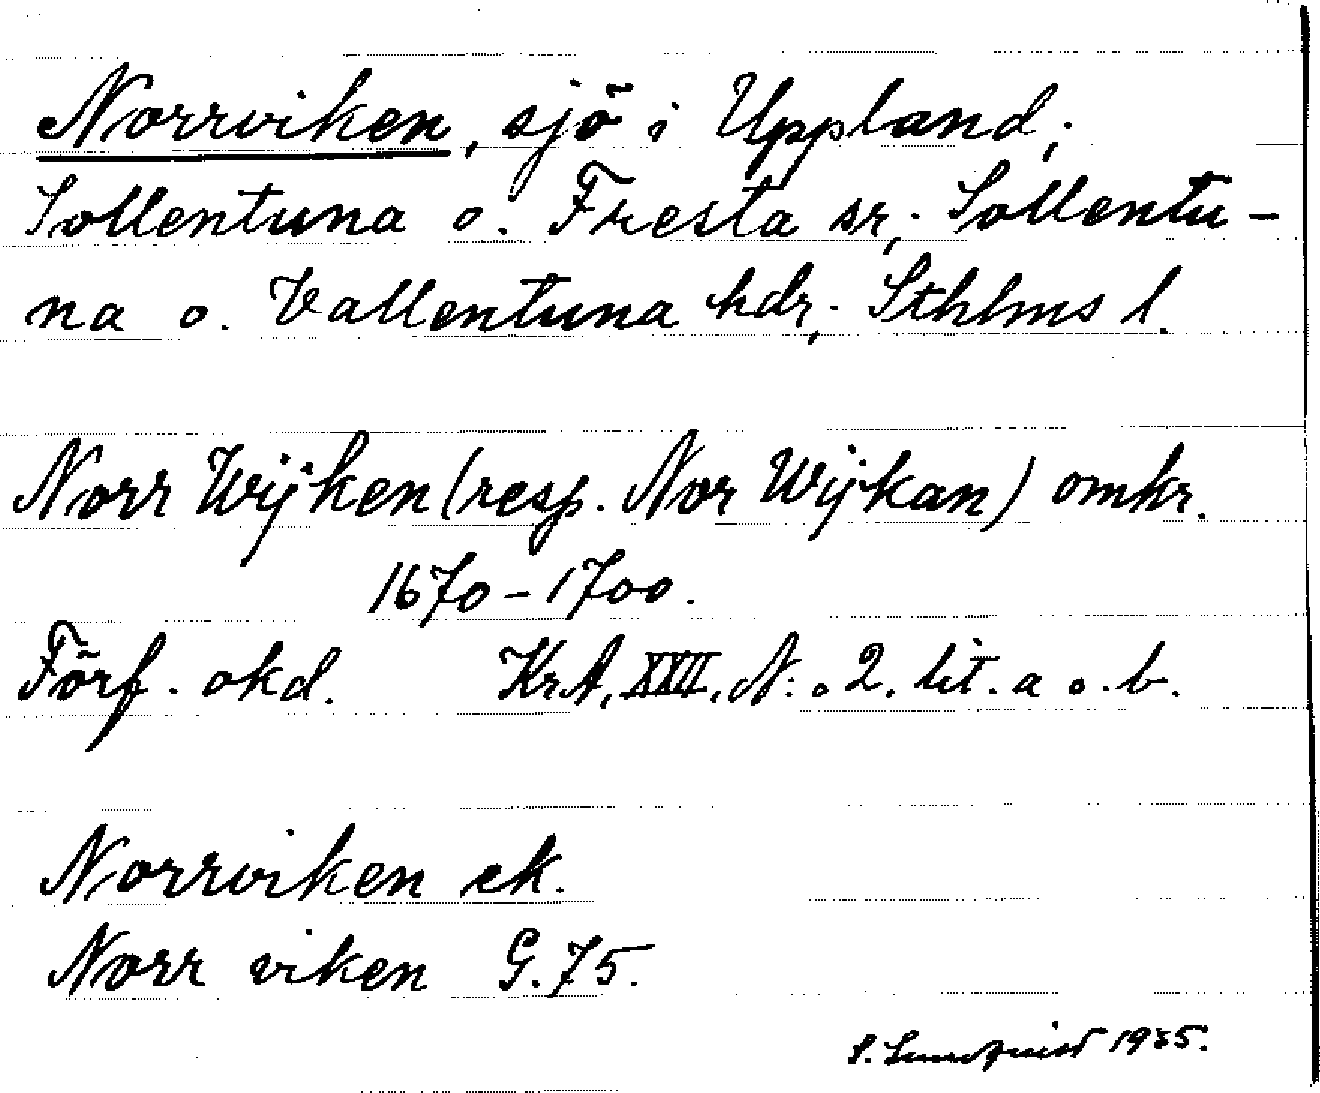 Norrviken, sjö i Uppland;
Sollentuna o. Fresta sr; Sollentu-
na o. Vallentuna hdr; Sthlms l.
Norr Wijken (resp. Nor Wijkan) omkr.
1670-1700.
Förf. okd. KrA, XXII, N:o 2. lit. a o. b.
Norrviken ek.
Norr viken G. 75.
S. Lundquist 1935.